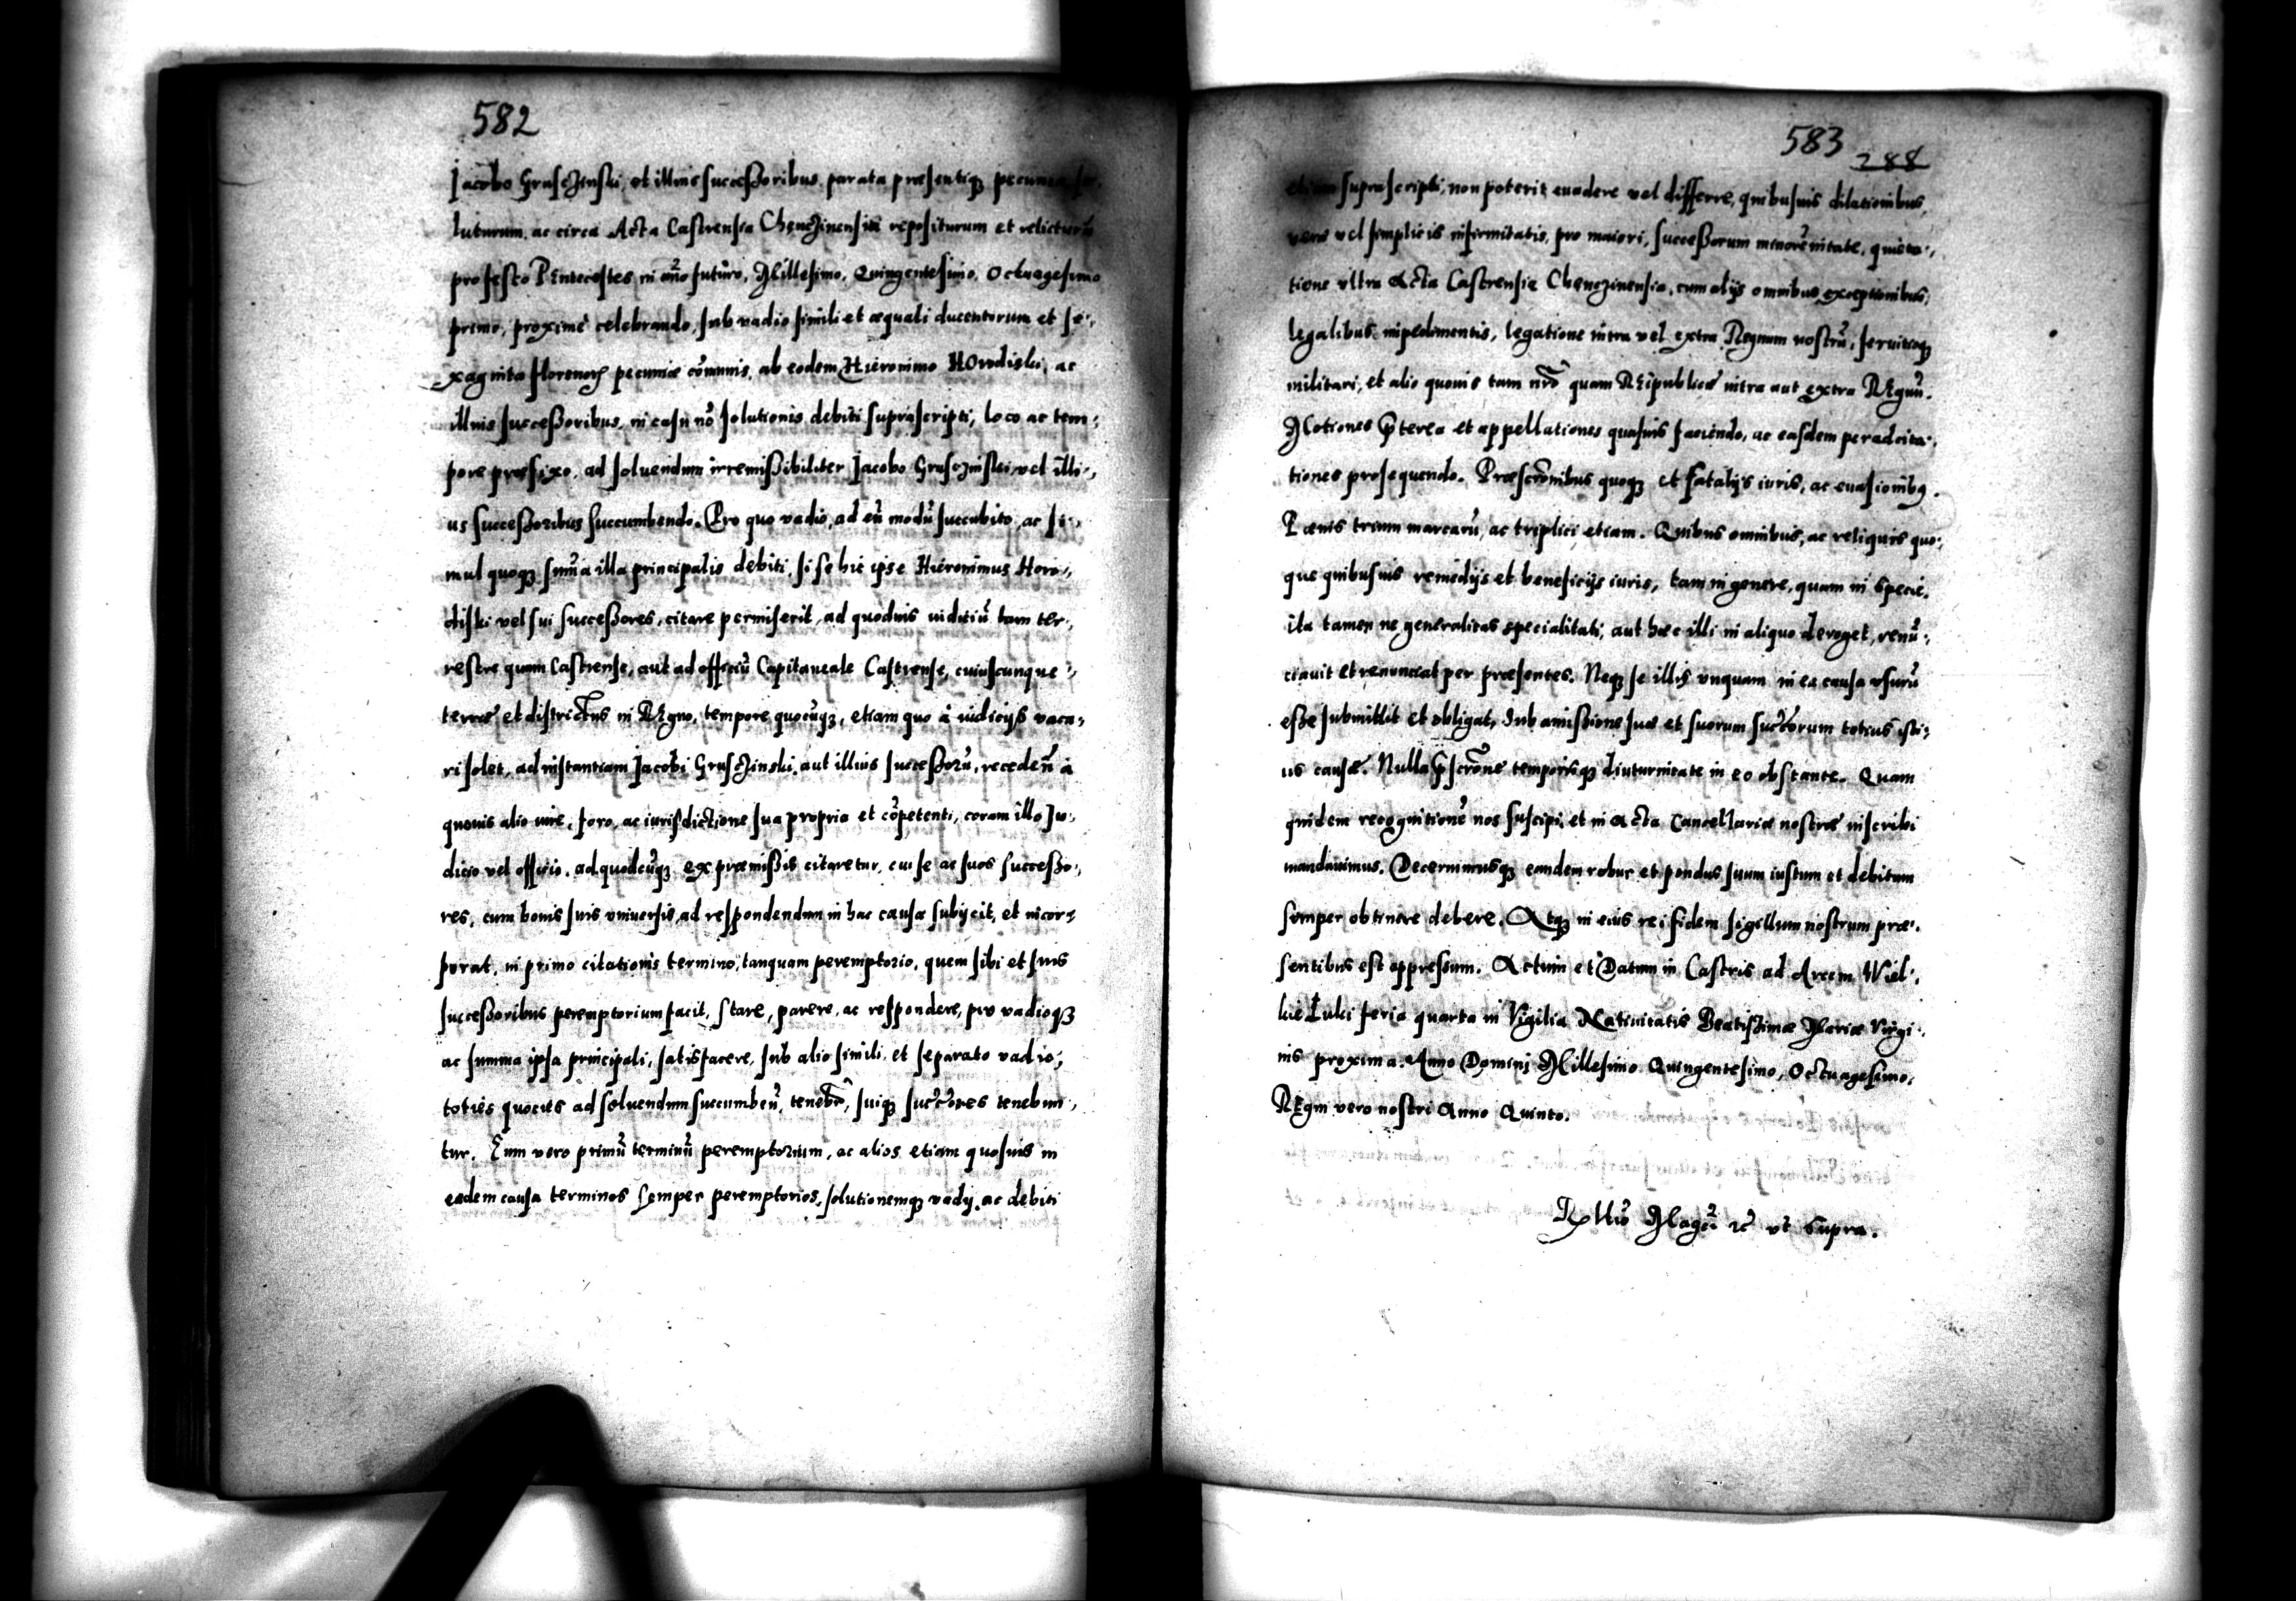 582
Jacobo Grusczinski, et illius successoribus, parata præsentiq3 pecunia so,
luturum, ac circa Acta Castrensia Chenczinensia repositurum et relicturū
pro festo Pentecostes in año futuro, Millesimo, Quingentesimo, Octuagesimo
primo, proximè celebrando, sub vadio simili et æquali ducentorum et se-,
xaginta florenorꝝ pecuniæ cōmunis, ab eodem Hieronimo Horodiski, ac
illius successoribus, in casu nō solutionis debiti suprascripti, loco ac tem-,
pore præfixo, ad soluendum irremissibiliter Jacobo Grusczinski, vel illi-,
us successoribus succumbendo. Pro quo vadio, ad eū modū succubito, ac si-,
mul quoq3 sum̄a illa principalis debiti, si se hic ipse Hieronimus Horo-,
diski vel sui successores, citare permiserit, ad quoduis iudiciū tam ter-,
restre quam Castrense, aut ad officiū Capitaneale Castrense, cuiuscunque
terræ et districtus in Regno, tempore quocūq3, etiam quo à iudicijs vaca-,
ri solet, ad instantiam Jacobi Grusczinski, aut illius successorū, recedeñ à
quouis alio iure, foro, ac iurisdictione sua propria et cōpetenti, coram illo Ju-,
dicio vel officio, ad quodcūq3 ex præmissis citaretur, cui se ac suos successo-,
res, cum bonis suis vniuersis, ad respondendum in hac causa subijcit, et incor-,
porat, in primo citationis termino, tanquam peremptorio, quem sibi et suis
successoribus peremptorium facit, stare, parere, ac respondere, pro vadioq3
ac summa ipsa principali, satisfacere, sub alio simili, et separato vadio,
toties quoties ad soluendum succumbeñ, tenebr̃, suiq3 succ̃ores tenebun-,
tur. Eum vero primū terminū peremptorium, ac alios etiam quosuis in
eadem causa terminos semper peremptorios, solutionemq3 vadij, ac debiti
583
288
etiam suprascripti, non poterit euadere vel differre, quibusuis dilationibus,
veræ vel simplicis infirmitatis, pro maiori, successorum minorēnitate, quieta-,
tione vltra Acta Castrensia Chenczinensia, cum alijs omnibus exceptionibus,
legalibus impedimentis, legatione intra vel extra Regnum nostrū, seruitioq3
militari, et alio quouis tam nr̃o quam Reipublicæ intra aut extra Regnū.
Motiones p̄terea et appellationes quasuis faciendo, ac easdem per adcita-,
tiones prosequendo. Præscr̃onibus quoq3 et fatalijs iuris, ac euasionibꝯ.
Pœnis trium marcarū, ac triplici etiam. Quibus omnibus, ac reliquis quo-,
que quibusuis remedijs et beneficijs iuris, tam in genere, quam in specie,
ita tamen ne generalitas specialitati, aut hæc illi in aliquo deroget, renū-,
ciauit et renunciat per præsentes. Neq3 se illis vnquam in ea causa vsurū
esse submittit et obligat, sub amissione suæ et suorum succ̃orum totius isti-,
us causæ. Nulla p̄scr̃one temporisq3 diuturnitate in eo obstante. Quam
quidem recognitionē nos suscipi, et in Acta Cancellariæ nostræ inscribi
mandauimus. Decernimusq3 eandem robur et pondus suum iustum et debitum
semper obtinere debere. Atq3 in eius rei fidem sigillum nostrum præ-,
sentibus est appressum. Actum et Datum in Castris ad Arcem Wiel-,
kie Luki feria quarta in Vigilia Natiuitatis Beatissimæ Mariæ Virgi-,
nis proxima. Anno Domini Millesimo Quingentesimo, Octuagesimo,
Regni vero nostri Anno Quinto.
Rello Magci 2c vt supra.